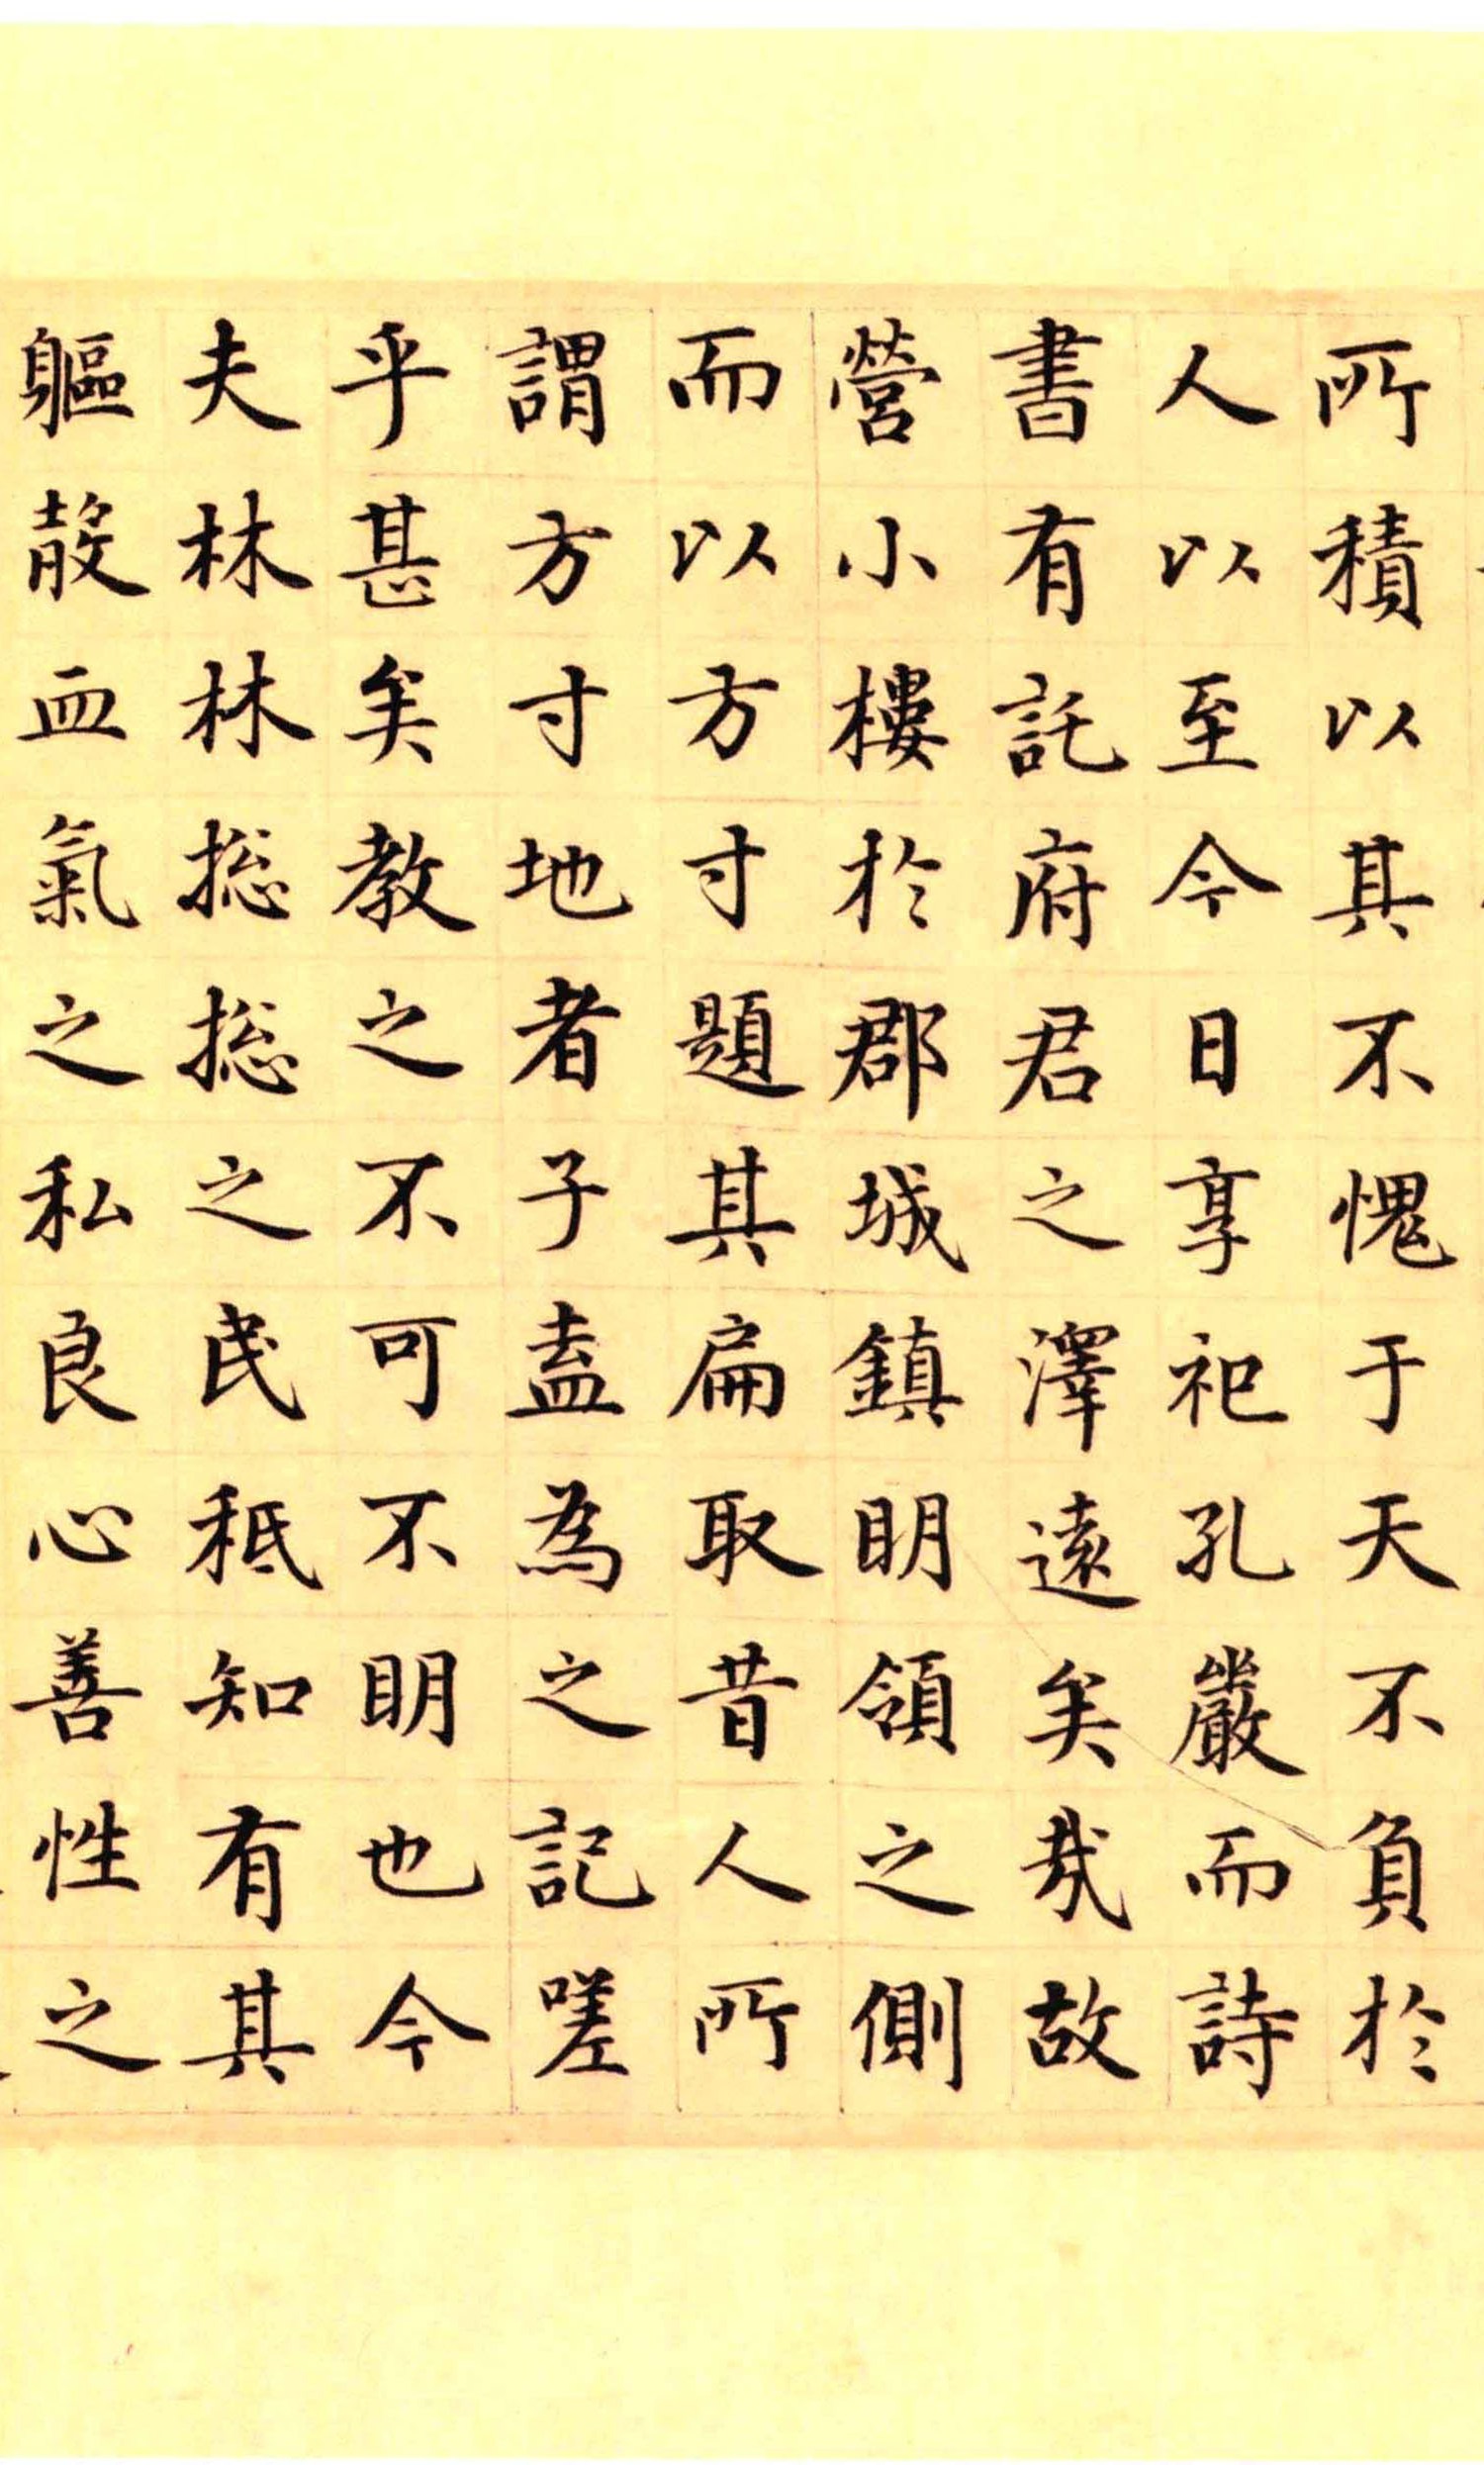 所積以其不愧于天不負於
人以至今日享祀孔嚴而詩
書有託府君之澤遠矣哉故
營小樓於郡城鎮明領之側
而以方寸題其扁取昔人所
謂方寸地者子盍為之記嗟
乎甚矣教之不可不明也今
夫林林揔揔之民秪知有其
軀殽血氣之私良心善性之